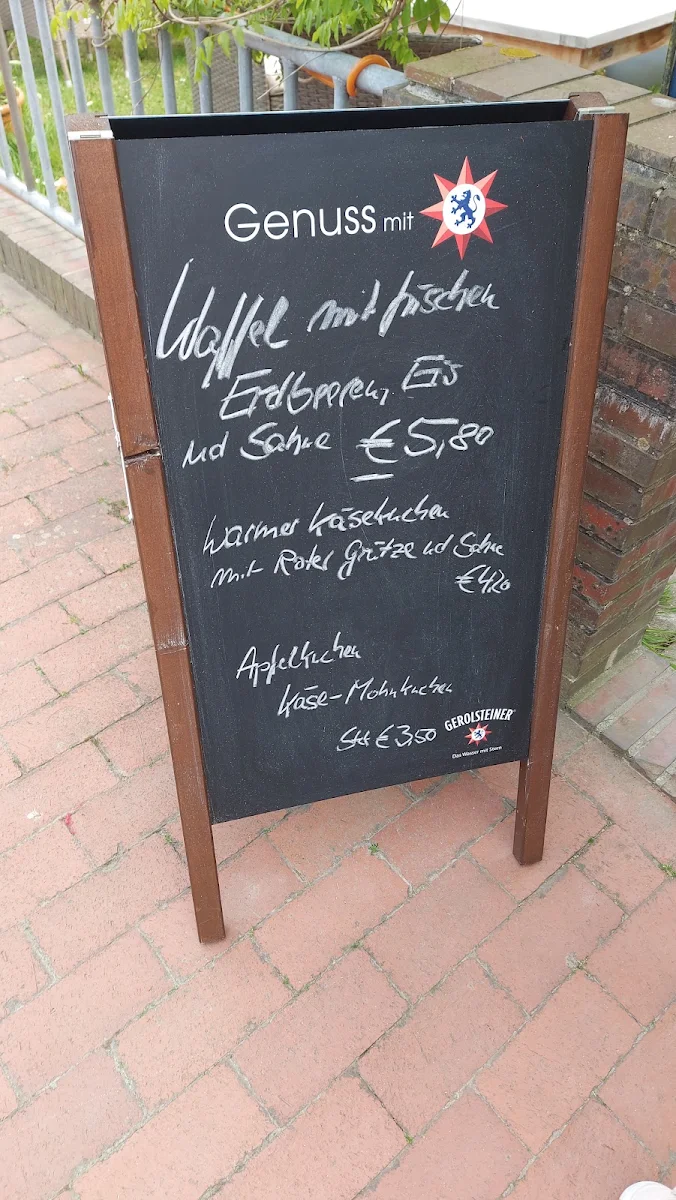 Genuss mit
Waffel mit frischen
Erdbeeren, Eis
und Sahne €5,80
Warmer Käsekuchen
mit Roter Grütze ud Sahne
€4,20
Apfelkuchen
Käse-Mohnkuchen
Stk €3,50
GEROLSTEINER
Das Wasser mit Stern